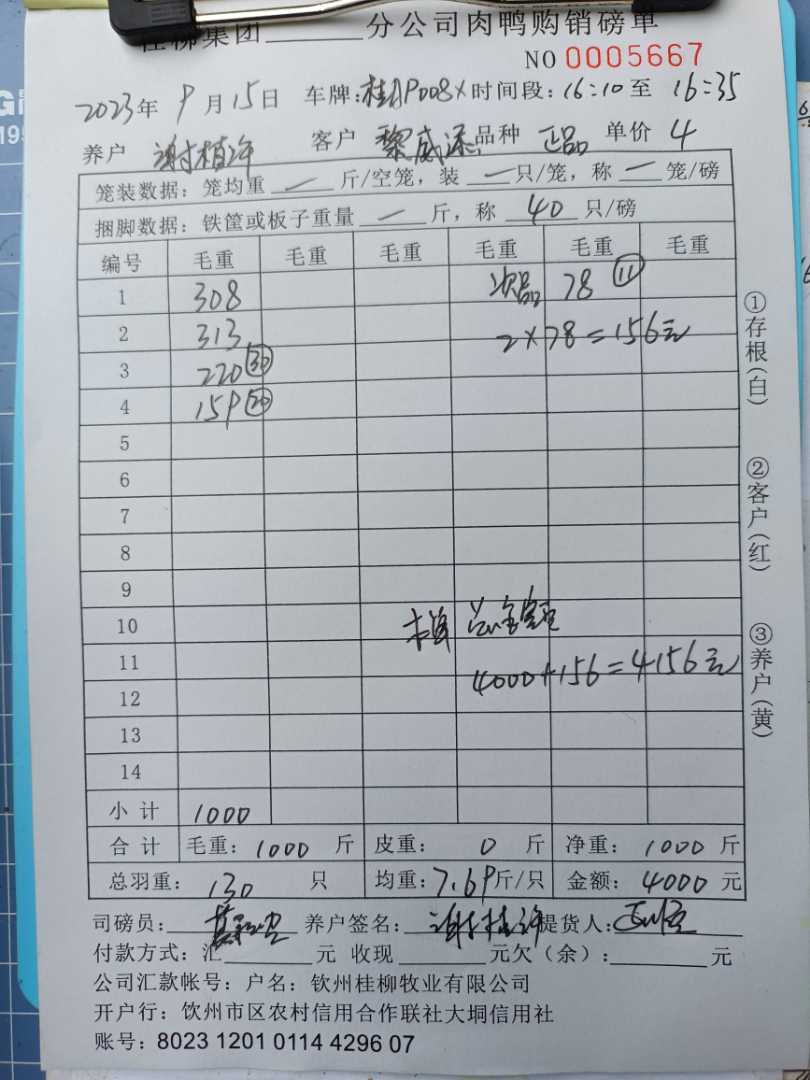 桂柳集团______分公司肉鸭购销磅单
NO 0005667
2023年 9月15日 车牌:桂AP008X 时间段:16:10至 16:35
养户 谢植许 客户 黎威添 品种 正品 单价 4
笼装数据:笼均重 — 斤/空笼,装 — 只/笼,称 — 笼/磅
捆脚数据:铁筐或板子重量 — 斤,称 40 只/磅
编号 毛重 毛重 毛重 毛重 毛重 毛重
1 308 次品 78 ⑪
2 313 2×78=156元
3 220 ㉚
4 159 ⑳
5
6
7
8
9
10 总金额
11 4000+156=4156元
12
13
14
小计 1000
合计 毛重: 1000 斤 皮重: 0 斤 净重: 1000 斤
总羽重: 130 只 均重:7.69斤/只 金额: 4000 元
司磅员: 养户签名: 谢植许 提货人:
付款方式:汇______元 收现______元欠(余):______元
公司汇款帐号:户名:钦州桂柳牧业有限公司
开户行:钦州市区农村信用合作联社大垌信用社
账号:8023 1201 0114 4296 07
①存根(白)
②客户(红)
③养户(黄)